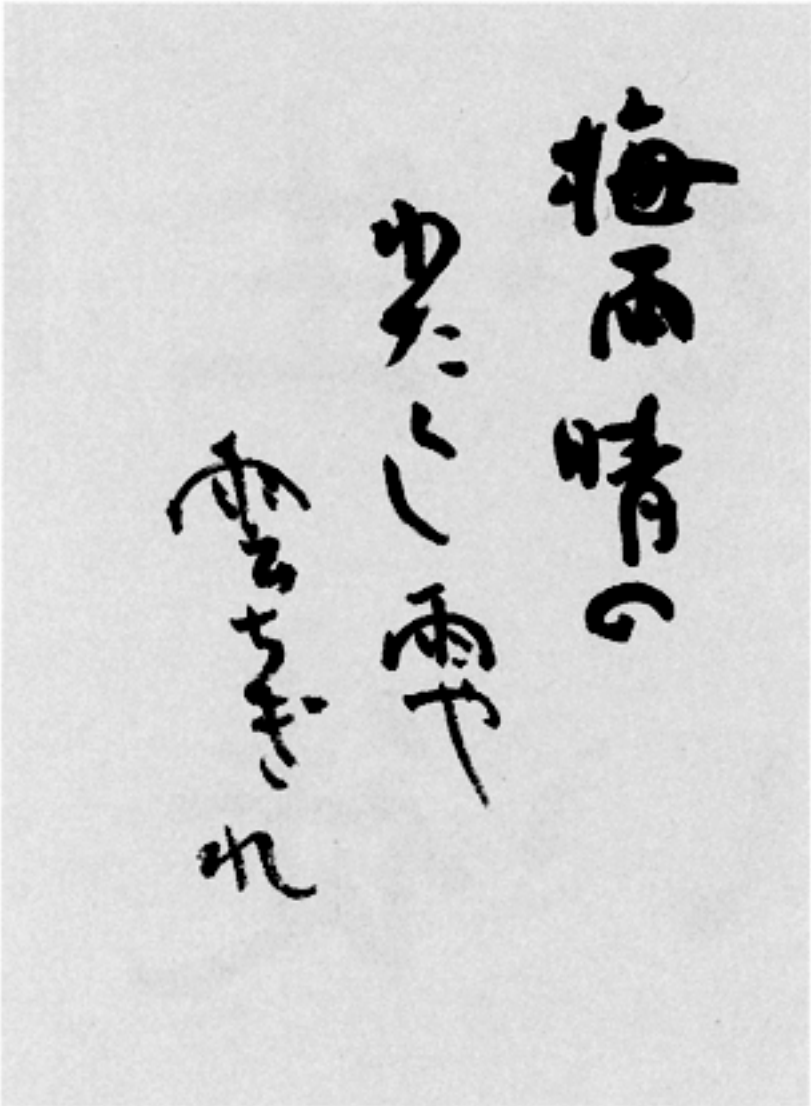 梅雨晴の
わたくし雨や
雲ちぎれ